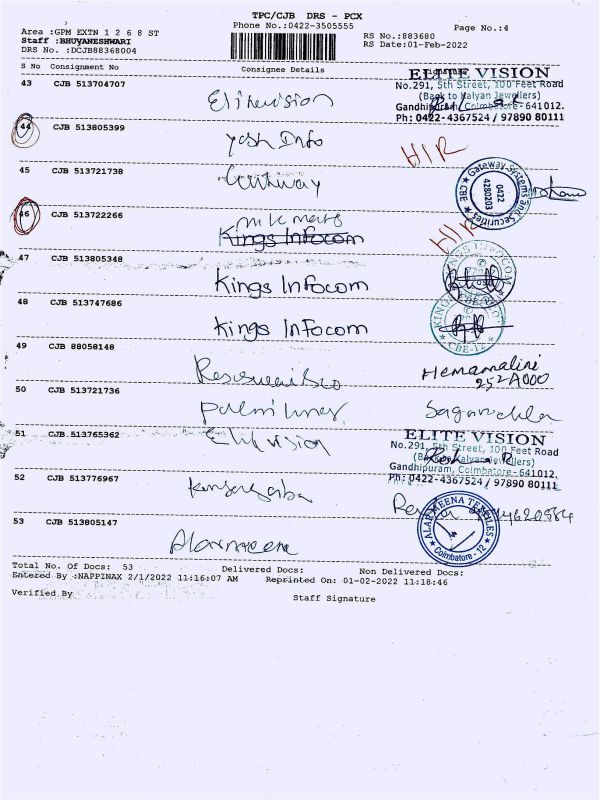 TPC/CJB DRS - PCX
Phone No.:0422-3505555
Page No.:4
Area :GPM EXTN 1 2 6 8 ST
Staff :BHUVANESHWARI
DRS No. :DCJB88368004
RS No.:883680
RS Date:01-Feb-2022
S No Consignment No Consignee Details Signature
ELITE VISION
No.291, 5th Street, 100 Feet Road
(Back to Kalyan Jewellers)
Gandhipuram, Coimbatore - 641012.
Ph: 0422-4367524 / 97890 80111
43 CJB 513704707
44 CJB 513805399
Yash Info
H/R
45 CJB 513721738
Gateway Systems and Securities
0422
4280203
CBE
46 CJB 513722266
Kings Infocom
H/R
47 CJB 513805348
Kings Infocom
KINGS INFOCOM
CBE-12
48 CJB 513747686
Kings Infocom
CBE-12
49 CJB 88058148
Hemamalini
252A000
50 CJB 513721736
51 CJB 513765362
Elite vision
ELITE VISION
No.291, 5th Street, 100 Feet Road
(Back to Kalyan Jewellers)
Gandhipuram, Coimbatore - 641012.
Ph: 0422-4367524 / 97890 80111
52 CJB 513776967
53 CJB 513805147
Alarmeena
ALARMEENA TEXTILES
Coimbatore - 12
Total No. Of Docs: 53 Delivered Docs: Non Delivered Docs:
Entered By :NAPPINAX 2/1/2022 11:16:07 AM Reprinted On: 01-02-2022 11:18:46
Verified By
Staff Signature